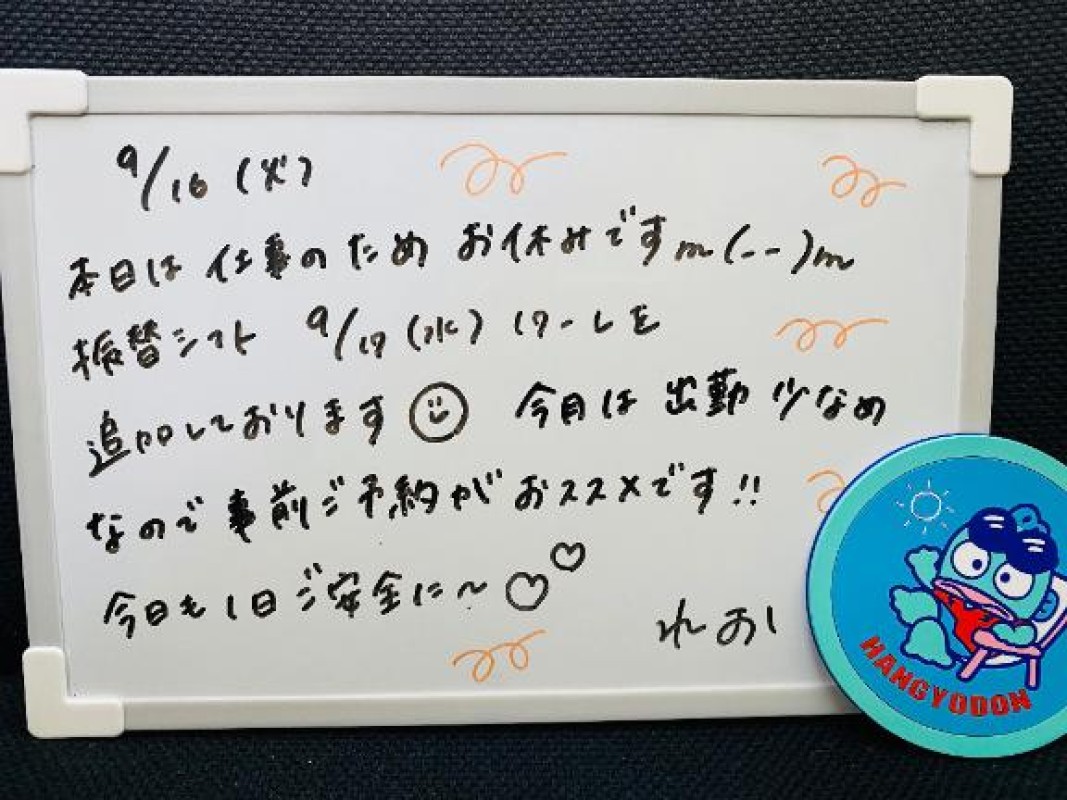 9/16 (火)
本日は 仕事のため お休みですm(--)m
振替シフト 9/17(水) 17-Lを
追加しております 今月は 出勤 少なめ
なので 事前ご予約がおススメです!!
今日も1日ご安全に~♡♡
れおし
HANGYODON